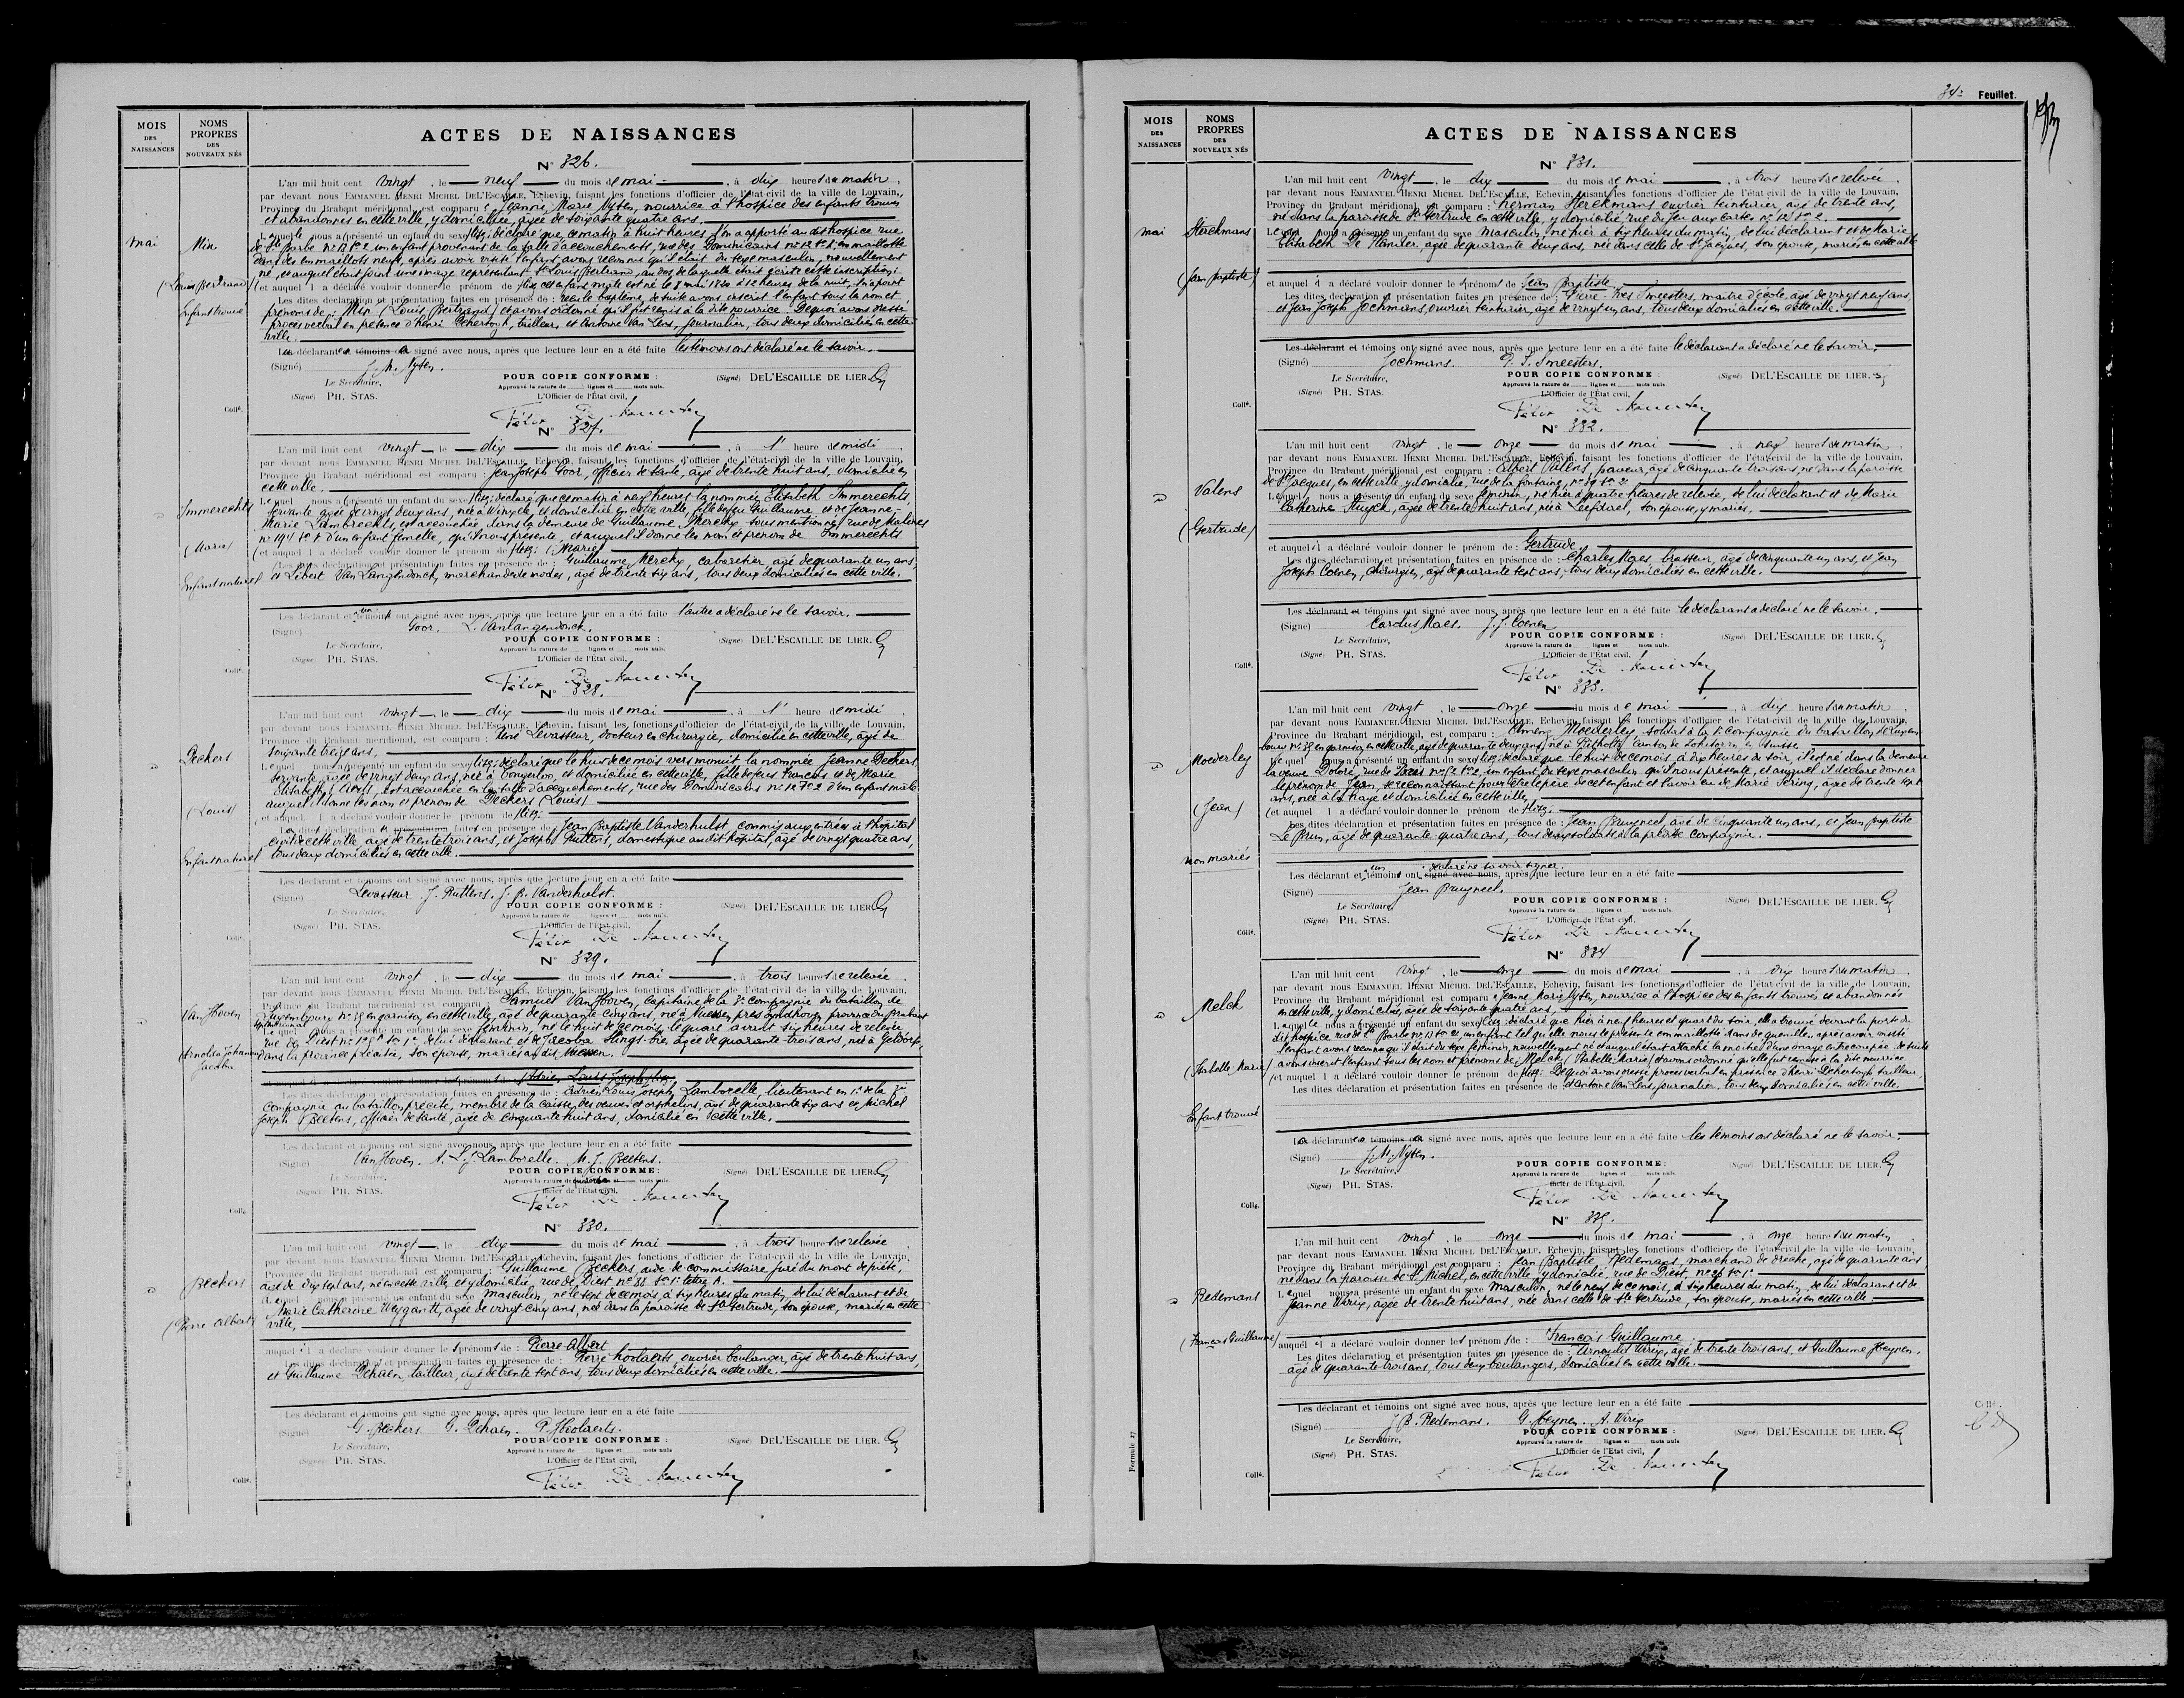 MOIS DES NAISSANCES
NOMS PROPRES DES NOUVEAUX NÉS
ACTES DE NAISSANCES
N° 326.
L'an mil huit cent vingt, le neuf du mois de mai, à dix heures du matin,
par devant nous EMMANUEL HENRI MICHEL DEL'ESCAILLE, Echevin, faisant les fonctions d'officier de l'état-civil de la ville de Louvain,
Province du Brabant méridional, est comparue Jeanne Marie Nysen, nourrice à l'hospice des enfants trouvés
et abandonnés en cette ville, y domiciliée, agée de soixante quatre ans.
mai
Min
(Louis Bertrand)
Enfant trouvé
Laquelle nous a déclaré que ce matin à huit heures l'on a apporté au dit hospice rue
de Ste Barbe n° 17 son 2, un enfant provenant de la salle d'accouchements, rue des Dominicains n° 12 emmaillotté
dans des emmaillots neufs, après avoir visité l'enfant, avons reconnu qu'il était du sexe masculin, nouvellement
né, et auquel était joint une image représentant St Louis Bertrand, au dos de laquelle était écrite cette inscription:
cet enfant mâle est né le 8 mai 1820 à 12 heures de la nuit,
reçu le baptême, de suite avons inscrit l'enfant sous les nom et
prénoms de: Min (Louis Bertrand) et avons ordonné qu'il fut remis à la dite nourrice. De quoi avons dressé
procès verbal en présence d'Henri Dehertogh, tailleur, et Antoine Van Lens, journalier, tous deux domiciliés en cette
ville.
La déclarante a signé avec nous, après que lecture leur en a été faite les témoins ont déclaré ne le savoir.
(Signé) J. M. Nysen.
Le Secrétaire,
POUR COPIE CONFORME :
(Signé) DEL'ESCAILLE DE LIER.
Approuvé la rature de lignes et mots nuls.
(Signé) PH. STAS.
L'Officier de l'État civil,
Coll.
N° 327.
L'an mil huit cent vingt, le dix du mois de mai, à 1' heure de midi,
par devant nous EMMANUEL HENRI MICHEL DEL'ESCAILLE, Echevin, faisant les fonctions d'officier de l'état-civil de la ville de Louvain,
Province du Brabant méridional, est comparu : Jean Joseph Goor, officier de santé, agé de trente huit ans, domicilié en
cette ville.
Immerechts
(Marie)
Enfant naturel
Lequel nous a déclaré que ce matin à neuf heures la nommée Elisabeth Immerechts
servante agée de vingt deux ans, née à Winxele, et domiciliée en cette ville, fille de feu Guillaume et de Jeanne
Marie Lambrechts, est accouchée, dans la demeure de Guillaume Merckx sous mentionné, rue de Malines
n° 194 d'un enfant femelle, qu'il nous présente, et auquel il donne les nom et prénom de Immerechts
(Marie)
Les dites déclaration et présentation faites en présence de : Guillaume Merckx, cabaretier, agé de quarante un ans,
et Libert Van Langendonck, marchand de modes, agé de trente six ans, tous deux domiciliés en cette ville.
Les déclarant et un témoin ont signé avec nous, après que lecture leur en a été faite l'autre a déclaré ne le savoir.
(Signé) Goor. L. Vanlangendonck.
Le Secrétaire,
POUR COPIE CONFORME :
(Signé) DEL'ESCAILLE DE LIER.
Approuvé la rature de lignes et mots nuls.
(Signé) PH. STAS.
L'Officier de l'État civil,
Coll.
N° 328.
L'an mil huit cent vingt, le dix du mois de mai, à 1' heure de midi
par devant nous EMMANUEL HENRI MICHEL DEL'ESCAILLE, Echevin, faisant les fonctions d'officier de l'état-civil de la ville de Louvain,
Province du Brabant méridional, est comparu : René Levasseur, docteur en chirurgie, domicilié en cette ville, agé de
soixante treize ans,
Deckers
(Louis)
Enfant naturel
Lequel nous a déclaré que le huit de ce mois vers minuit la nommée Jeanne Deckers
servante, agée de vingt deux ans, née à Tongerloo, et domiciliée en cette ville, fille de feus Francois et de Marie
Elisabeth est accouchée en la salle d'accouchements, rue des Dominicains n° 12 d'un enfant mâle
auquel il donne les nom et prénom de Deckers (Louis)
faites en présence de : Jean Baptiste Vanderhulst, commis aux entrées à l'hôpital
civil de cette ville, agé de trente trois ans, et Joseph Ruttens, domestique au dit hôpital, agé de vingt quatre ans,
tous deux domiciliés en cette ville.
Les déclarant et témoins ont signé avec nous, après que lecture leur en a été faite
(Signé) Levasseur. J. Ruttens. J. B. Vanderhulst.
Le Secrétaire,
POUR COPIE CONFORME :
(Signé) DEL'ESCAILLE DE LIER.
Approuvé la rature de lignes et mots nuls.
(Signé) PH. STAS.
L'Officier de l'État civil,
Coll.
N° 329.
L'an mil huit cent vingt, le dix du mois de mai, à trois heures de relevée
par devant nous EMMANUEL HENRI MICHEL DEL'ESCAILLE, Echevin, faisant les fonctions d'officier de l'état-civil de la ville de Louvain,
Province du Brabant méridional est comparu : Samuel Van Hoven, capitaine de la compagnie du bataillon de
en garnison en cette ville, agé de quarante cinq ans, né à près Eyndhoven, province du Brabant
septentrional
Van Hoven
(Arnolda Johanna Jacoba)
Lequel nous a présenté un enfant du sexe féminin, né le huit de ce mois, le quart avant six heures de relevée,
rue de Diest de lui déclarant et de Jacoba agée de quarante trois ans, née à
dans la province son épouse, mariés
Les dites déclaration et présentation faites en présence de : Adrien Louis Joseph Lamborelle, lieutenant en 1r de la
compagnie au bataillon précité, membre de la caisse des veuves et orphelins, agé de quarante six ans et Michel
Joseph Beetens, officier de santé, agé de cinquante huit ans, domicilié en cette ville.
Les déclarant et témoins ont signé avec nous, après que lecture leur en a été faite
(Signé) Van Hoven. A. L. J. Lamborelle. M. J. Beetens.
Le Secrétaire,
POUR COPIE CONFORME:
(Signé) DEL'ESCAILLE DE LIER.
(Signé) PH. STAS.
Coll.
N° 330.
L'an mil huit cent vingt, le dix du mois de mai, à trois heures de relevée
par devant nous EMMANUEL HENRI MICHEL DEL'ESCAILLE, Echevin, faisant les fonctions d'officier de l'état-civil de la ville de Louvain,
Province du Brabant méridional est comparu : Guillaume Beckers, aide de commissaire juré du mont de piété,
agé de dix sept ans, né en cette ville, et y domicilié, rue de Diest n° 88 son 1r lettre A.
Beckers
(Pierre Albert)
Lequel nous a présenté un enfant du sexe masculin, né le sept de ce mois, à six heures du matin, de lui déclarant et de
Marie Catherine Weygantt, agée de vingt cinq ans, née dans la paroisse de Ste Gertrude, son épouse, mariés en cette
ville,
auquel il a déclaré vouloir donner les prénoms de : Pierre Albert
Les dites déclaration et présentation faites en présence de : Pierre hoolaerts, ouvrier boulanger, agé de trente huit ans,
et Guillaume Dehaen, tailleur, agé de trente sept ans, tous deux domiciliés en cette ville.
Les déclarant et témoins ont signé avec nous, après que lecture leur en a été faite
(Signé) G. Beckers. G. Dehaen. P. Hoolaerts.
Le Secrétaire,
POUR COPIE CONFORME :
(Signé) DEL'ESCAILLE DE LIER.
Approuvé la rature de lignes et mots nuls
(Signé) PH. STAS.
L'Officier de l'État civil,
Coll.
84e Feuillet.
MOIS DES NAISSANCES
NOMS PROPRES DES NOUVEAUX NÉS
ACTES DE NAISSANCES
N° 331.
L'an mil huit cent vingt, le dix du mois de mai, à trois heures de relevée
par devant nous EMMANUEL HENRI MICHEL DEL'ESCAILLE, Echevin, faisant les fonctions d'officier de l'état civil de la ville de Louvain,
Province du Brabant méridional, est comparu : Herman Sterckmans ouvrier teinturier, agé de trente ans,
né dans la paroisse de Ste Gertrude en cette ville, y domicilié rue du Jeu aux cartes n° 12 son 2.
mai
Sterckmans
(Jean Baptiste)
Lequel nous a présenté un enfant du sexe masculin, né hier à six heures du matin, de lui déclarant et de Marie
Elisabeth De Vleminck, agée de quarante deux ans, née dans celle de St Jacques, son épouse, mariés en cette ville
et auquel il a déclaré vouloir donner les prénoms de Jean Baptiste
Les dites déclaration et présentation faites en présence de : Pierre Yves Smeesters, maître d'école, agé de vingt neuf ans,
et Jean Joseph Jochmans, ouvrier teinturier, agé de vingt un ans, tous deux domiciliés en cette ville.
Les déclarant et témoins ont signé avec nous, après que lecture leur en a été faite le déclarant a déclaré ne le savoir.
(Signé) Jochmans. P. I. Smeesters.
Le Secrétaire,
POUR COPIE CONFORME :
(Signé) DEL'ESCAILLE DE LIER.
Approuvé la rature de lignes et mots nuls.
(Signé) PH. STAS.
L'Officier de l'État civil,
Coll.
N° 332.
L'an mil huit cent vingt, le onze du mois de mai, à neuf heures du matin,
par devant nous EMMANUEL HENRI MICHEL DEL'ESCAILLE, Echevin, faisant les fonctions d'officier de l'état-civil de la ville de Louvain,
Province du Brabant méridional, est comparu : Albert Valens, paveur, agé de cinquante trois ans, né dans la paroisse
de St Jacques, en cette ville y domicilié, rue de la fontaine, n° 59 son 2
Valens
(Gertrude)
Lequel nous a présenté un enfant du sexe féminin, né hier à quatre heures de relevée, de lui déclarant et de Marie
Catherine Stuyck, agée de trente huit ans, née à Leefdael, son épouse, y mariés,
et auquel il a déclaré vouloir donner le prénom de : Gertrude
Les dites déclaration et présentation faites en présence de : Charles Maes, brasseur, agé de cinquante un ans, et Jean
Joseph Coenen, chirurgien, agé de quarante sept ans, tous deux domiciliés en cette ville.
Les déclarant et témoins ont signé avec nous, après que lecture leur en a été faite le déclarant a déclaré ne le savoir.
(Signé) Carolus Maes. J. J. Coenen
Le Secrétaire,
POUR COPIE CONFORME :
(Signé) DEL'ESCAILLE DE LIER.
Approuvé la rature de lignes et mots nuls.
(Signé) PH. STAS.
L'Officier de l'État civil,
Coll.
N° 333.
L'an mil huit cent vingt, le onze du mois de mai, à dix heures du matin
par devant nous EMMANUEL HENRI MICHEL DEL'ESCAILLE, Echevin, faisant les fonctions d'officier de l'état-civil de la ville de Louvain,
Province du Brabant méridional, est comparu : Moederley, soldat à la 1e compagnie du bataillon
en garnison en cette ville, agé de quarante deux ans, né à en Suisse
Moederley
(Jean)
non mariés
Lequel nous a déclaré que le huit de ce mois, à dix heures du soir, il est né dans la demeure
la veuve Doloré, rue de un enfant du sexe masculin qu'il nous présente, et auquel il déclare donner
le prénom de Jean, se reconnaissant pour être le père de cet enfant et l'avoir eu de Marie Sering, agée de trente sept
ans, née à la haye et domiciliée en cette ville,
Les dites déclaration et présentation faites en présence de : Jean Bruyneel, agé de cinquante un ans, et Jean Baptiste
Le Brun, agé de quarante quatre ans, tous deux soldats à la précitée compagnie.
déclaré ne savoir signer.
Les déclarant et un témoins ont signé avec nous, après que lecture leur en a été faite
(Signé) Jean Bruyneel.
Le Secrétaire,
POUR COPIE CONFORME :
(Signé) DEL'ESCAILLE DE LIER.
Approuvé la rature de lignes et mots nuls.
(Signé) PH. STAS.
L'Officier de l'État civil,
Coll.
N° 334
L'an mil huit cent vingt, le onze du mois de mai, à dix heures du matin.
par devant nous EMMANUEL HENRI MICHEL DEL'ESCAILLE, Echevin, faisant les fonctions d'officier de l'état-civil de la ville de Louvain,
Province du Brabant méridional est comparue Jeanne Marie Nysen, nourrice à l'hospice des enfants trouvés et abandonnés
en cette ville, y domiciliée, agée de soixante quatre ans,
Melck
(Isabelle Marie)
Enfant trouvé
Laquelle nous a déclaré que hier à neuf heures et quart du soir, elle a trouvé devant la porte du
dit hospice rue de Ste Barbe n° 17 un enfant tel qu'elle nous le présente emmaillotté dans des guenilles, après avoir visité
l'enfant avons reconnu qu'il était du sexe féminin, nouvellement né et auquel était attaché la moitié d'une image entrecoupée. de suite
avons inscrit l'enfant sous les nom et prénoms de: Melck (Isabelle Marie) et avons ordonné qu'elle fut remise à la dite nourrice
De quoi avons dressé procès verbal en présence d'Henri Dehertogh tailleur
et Antoine Van Lens, journalier, tous deux domiciliés en cette ville.
La déclarante a signé avec nous, après que lecture leur en a été faite les témoins ont déclaré ne le savoir.
(Signé) J. M. Nysen.
Le Secrétaire,
POUR COPIE CONFORME:
(Signé) DEL'ESCAILLE DE LIER.
Approuvé la rature de lignes et mots nuls.
(Signé) PH. STAS.
Coll.
N° 335.
L'an mil huit cent vingt, le onze du mois de mai, à onze heures du matin,
par devant nous EMMANUEL HENRI MICHEL DEL'ESCAILLE, Echevin, faisant les fonctions d'officier de l'état-civil de la ville de Louvain,
Province du Brabant méridional est comparu : Jean Baptiste Redemans, marchand de drèche, agé de quarante ans
né dans la paroisse de St Michel, en cette ville, y domicilié, rue de Diest,
Redemans
(Francois Guillaume)
Lequel nous a présenté un enfant du sexe masculin, né le neuf de ce mois, à six heures du matin, de lui déclarant et de
Jeanne Wirix, agée de trente huit ans, née dans celle de Ste Gertrude, son épouse, mariés en cette ville
auquel il a déclaré vouloir donner les prénoms de : Francois Guillaume
Les dites déclaration et présentation faites en présence de : Arnould Wirix, agé de trente trois ans, et Guillaume Heynen,
agé de quarante trois ans, tous deux boulangers, domiciliés en cette ville.
Les déclarant et témoins ont signé avec nous, après que lecture leur en a été faite
(Signé) J. B. Redemans. G. Heynen. A. Wirix
Le Secrétaire,
POUR COPIE CONFORME :
(Signé) DEL'ESCAILLE DE LIER.
Approuvé la rature de lignes et mots nuls
(Signé) PH. STAS.
L'Officier de l'Etat civil,
Coll.
Formule 27